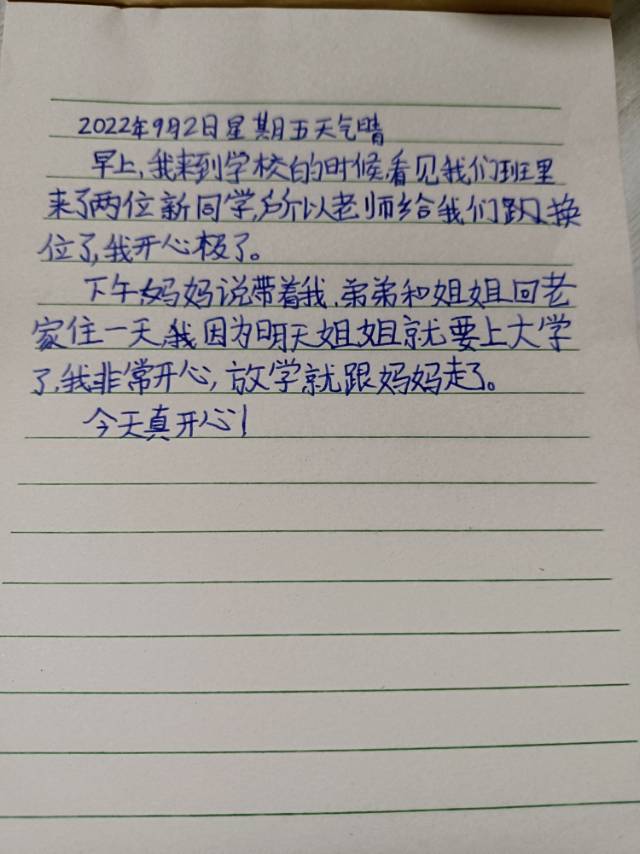 2022年9月2日星期五天气晴
早上,我来到学校的时候,看见我们班里
来了两位新同学,所以老师给我们换
位了,我开心极了。
下午妈妈说带着我、弟弟和姐姐回老
家住一天,我因为明天姐姐就要上大学
了,我非常开心,放学就跟妈妈走了。
今天真开心!